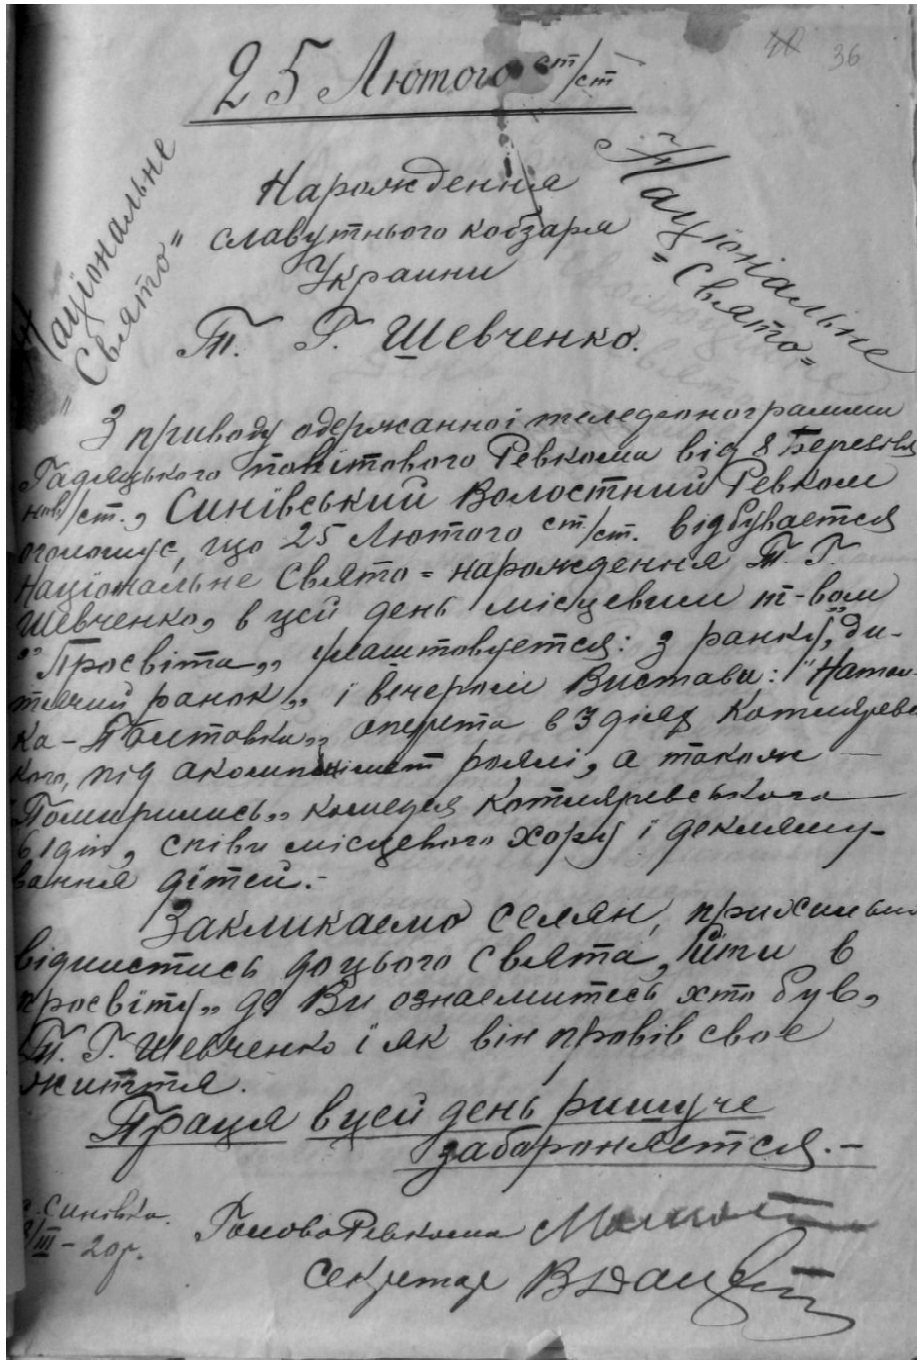 36
25 Лютого ст/ст
Національне
"Свято"
Нарождення
славутнього кобзаря
Украини
Національне
"Свято"
Т. Г. Шевченко.
З приводу одержанноі телефонограмми
Гадяцького повітового Ревкома від 8 Березня
нов/ст., Синівський Волостний Ревком
оголошує, що 25 Лютого ст./ст. відбувается
Національне Свято = народження Т. Г.
Шевченко, в цей день місцевим т-вом
"Просвіта„ улаштовуется: з ранку, „ди-
тячий ранок„ і вечером Вистава: "Натал-
ка-Полтавка„ оперета в 3 діях Котляревс
кого, під акомпанімент роялі, а також —
"Помирились„ комедія Котляревського
в 1 дії, співи місцевого хору і декляму-
вання дітей.-
Закликаемо селян, прихильно
віднистись до цього свята, йти в
просвіту„ де Ви ознаемитесь хто був,
Т. Г. Шевченко і як він провів свое
життя.
Праця в цей день ришуче
забороняется.-
с. Синівка.
/III - 20 р.
Голова Ревкома
Секретар